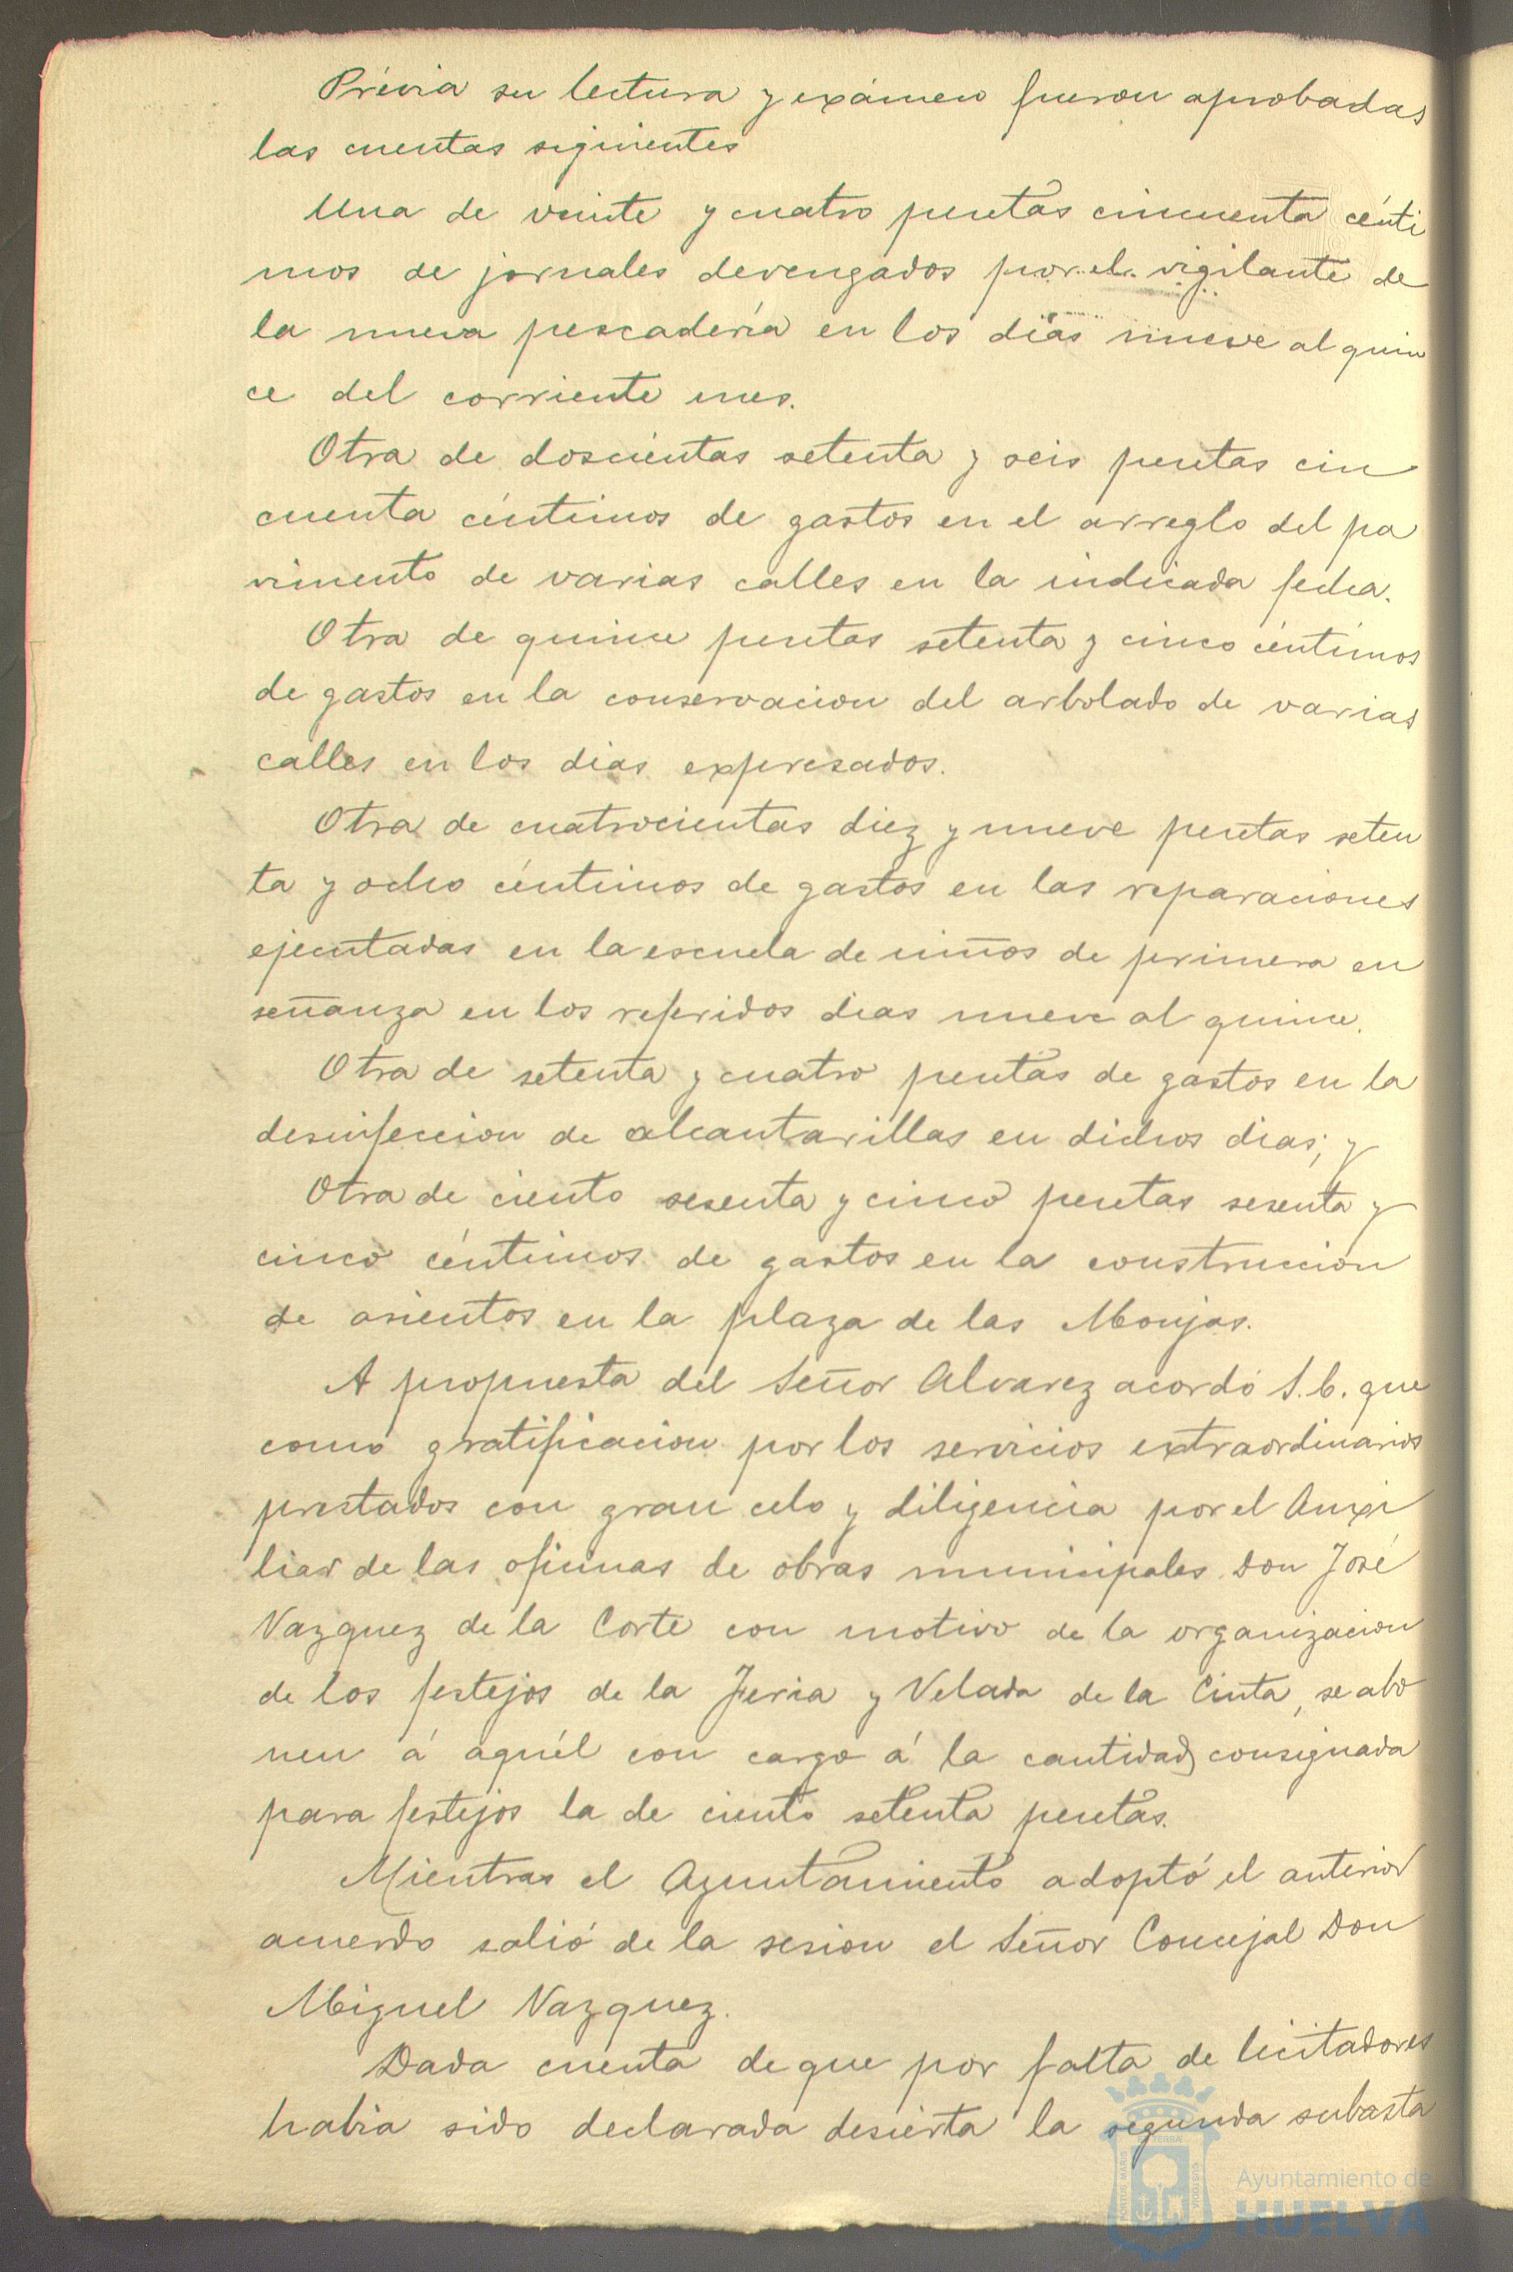 Prévia su lectura y exámen fueron aprobadas
las cuentas siguientes
Una de veinte y cuatro pesetas cincuenta cénti
mos de jornales devengados por el vigilante de
la nueva pescadería en los dias nueve al quin
ce del corriente mes.
Otra de doscientas setenta y seis pesetas cin
cuenta céntimos de gastos en el arreglo del pa
vimento de varias calles en la indicada fecha.
Otra de quince pesetas setenta y cinco céntimos
de gastos en la conservacion del arbolado de varias
calles en los dias expresados.
Otra de cuatrocientas diez y nueve pesetas seten
ta y ocho céntimos de gastos en las reparaciones
ejecutadas en la escuela de niños de primera en
señanza en los referidos dias nueve al quince.
Otra de setenta y cuatro pesetas de gastos en la
desinfeccion de alcantarillas en dichos dias; y
Otra de ciento sesenta y cinco pesetas sesenta y
cinco céntimos de gastos en la construccion
de asientos en la plaza de las Monjas.
A propuesta del Señor Alvarez acordó S. E. que
como gratificacion por los servicios extraordinarios
prestados con gran celo y diligencia por el Auxi
liar de las oficinas de obras municipales Don José
Vazquez de la Corte con motivo de la organizacion
de los festejos de la Feria y Velada de la Cinta, se abo
nen á aquél con cargo á la cantidad consignada
para festejos la de ciento setenta pesetas.
Mientras el Ayuntamiento adoptó el anterior
acuerdo salió de la sesion el Señor Concejal Don
Miguel Vazquez.
Dada cuenta de que por falta de licitadores
habia sido declarada desierta la segunda subasta
Ayuntamiento de
HUELVA